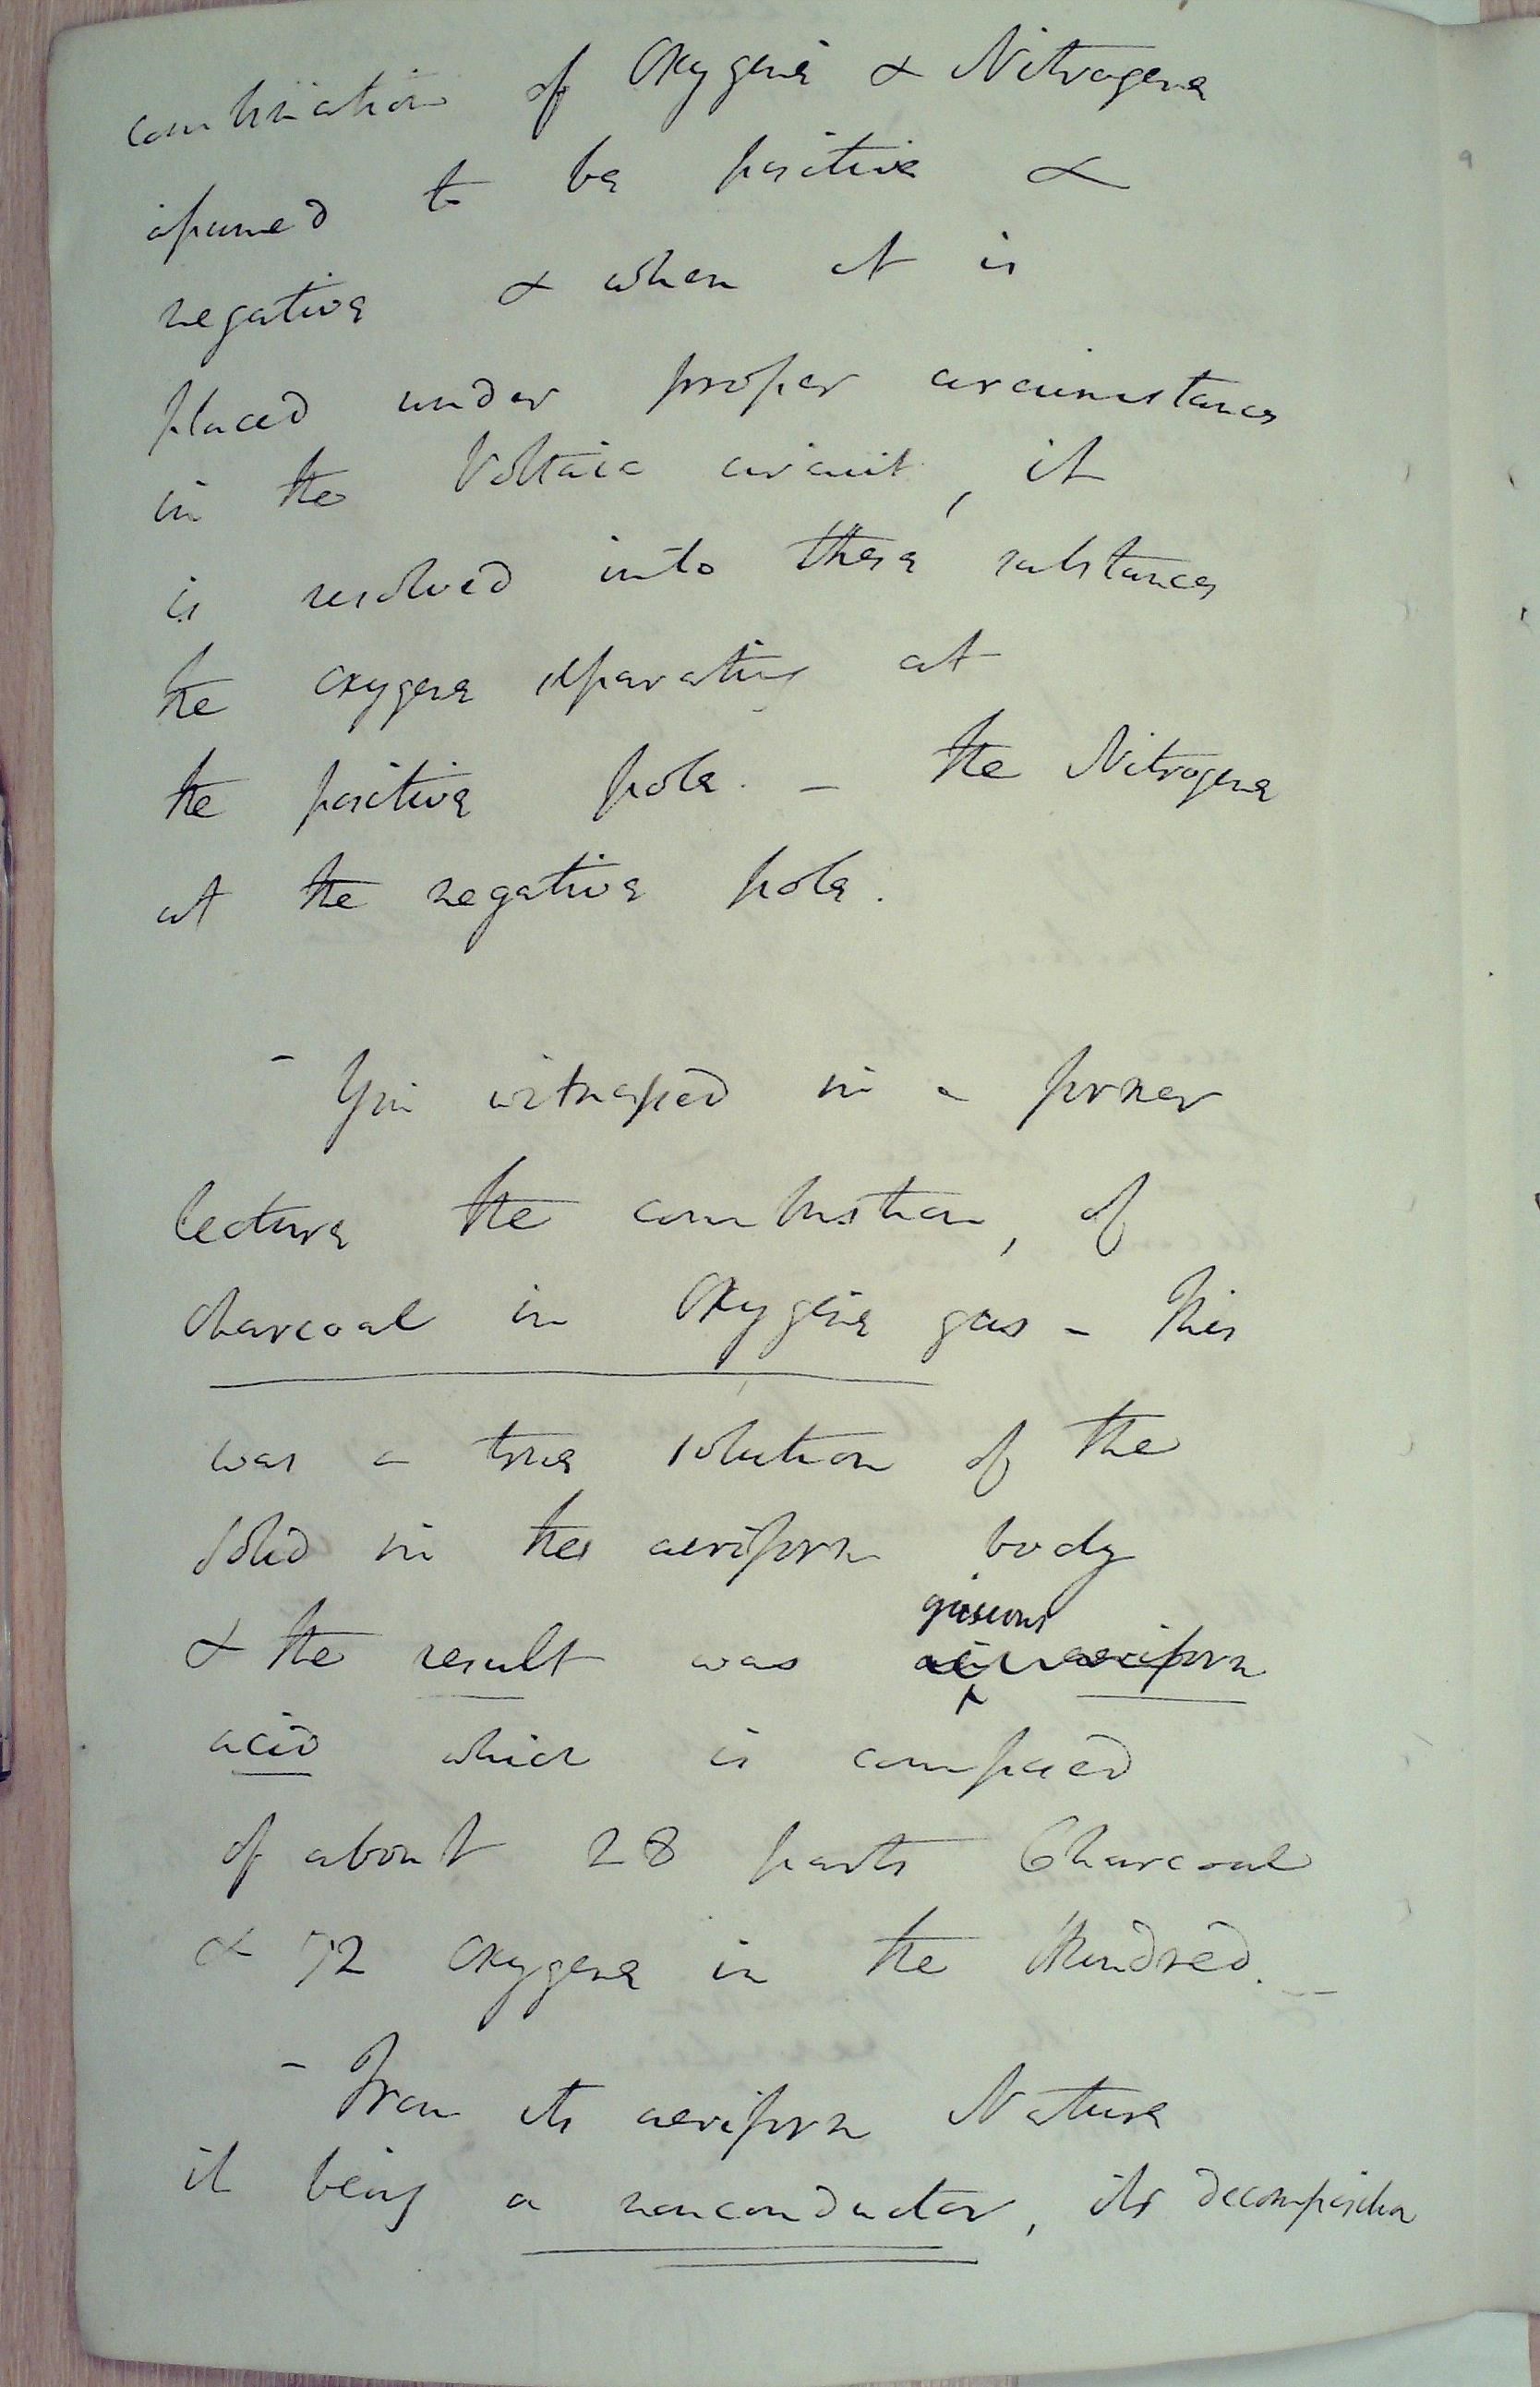 combination of Oxygene & Nitrogene
assumed to be positive &
negative & when it is
placed under proper circumstances
in the Voltaic circuit, it
is resolved into these substances
the oxygene separating at
the positive pole. – the Nitrogene
at the negative pole.
– You witnessed in a former
lecture the combustion, of
charcoal in Oxygene gas – This
was a true solution of the
solid in the aeriform body
gaseous
& the result was aeriform
acid which is composed
of about 28 parts Charcoal
& 72 oxygene in the Hundred. –
– From its aeriform Nature
it being a nonconductor, its decomposition